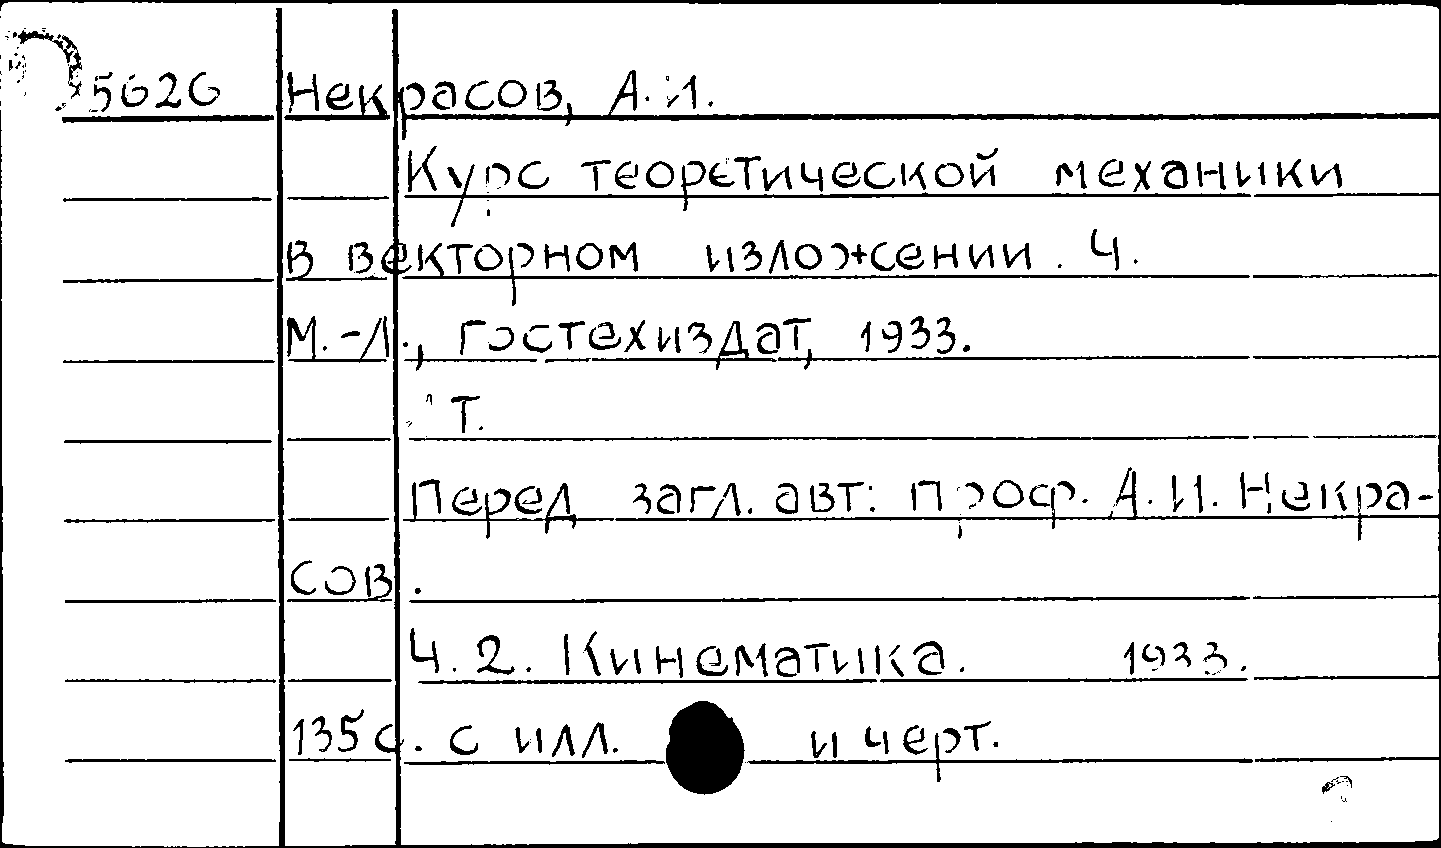 5626 Некрасов, А. И.
Курс теоретической механики
в векторном изложении. Ч.
М.-Л., Гостехиздат, 1933.
Т.
Перед загл. авт: проф. А. И. Некра-
сов.
Ч. 2. Кинематика. 1933.
135 с. с илл. и черт.